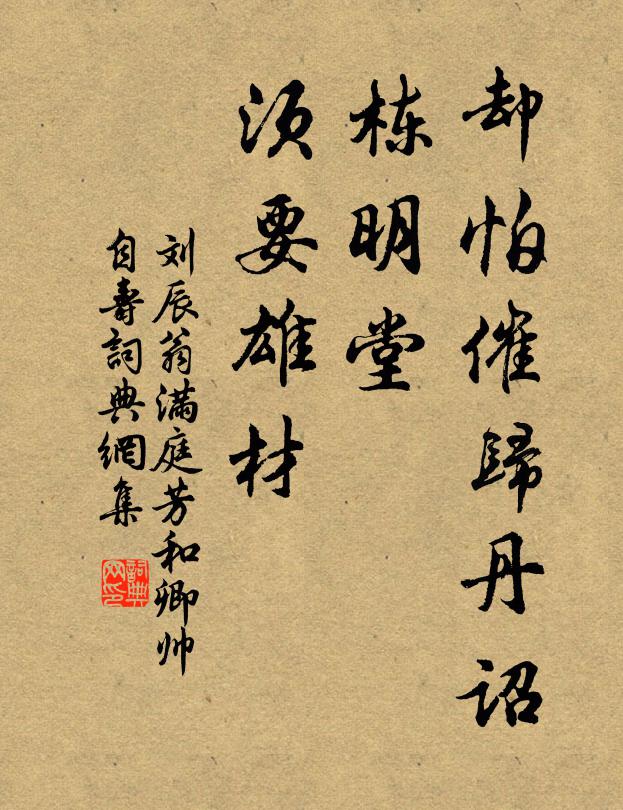 却怕催歸丹詔
栋明堂
须要雄材
刘辰翁满庭芳和卿帅
自壽詞典網集
詞典网印